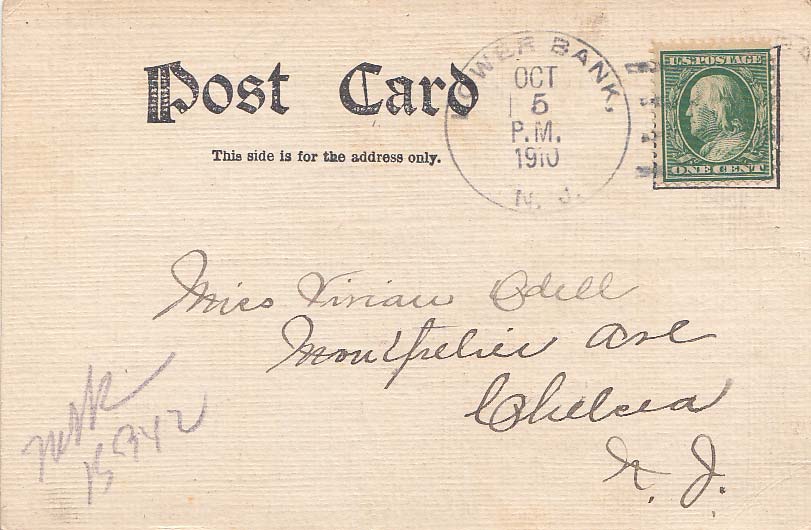 Post Card
This side is for the address only.
LOWER BANK,
OCT
5
P.M.
1910
N. J.
U.S. POSTAGE
ONE CENT
Miss Vivian Odell
Montpelier Ave
Chelsea
N. J.